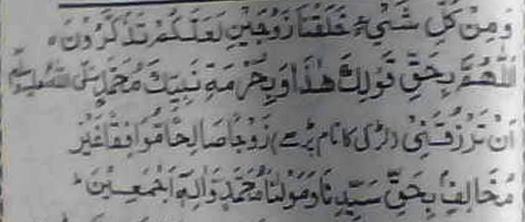 وَمِنْ كُلِّ شَيْءٍ خَلَقْنَا زَوْجَيْنِ لَعَلَّكُمْ تَذَكَّرُوْنَ ۝
اَللّٰهُمَّ بِحَقِّ قَوْلِكَ هٰذَا وَبِحُرْمَةِ نَبِيِّكَ مُحَمَّدٍ صَلَّى اللّٰهُ عَلَيْهِ وَسَلَّمَ
اَنْ تَرْزُقَنِيْ (لڑکی کا نام پڑھے) زَوْجًا صَالِحًا مُوَافِقًا غَيْرَ
مُخَالِفٍ بِحَقِّ سَيِّدِنَا وَمَوْلٰنَا مُحَمَّدٍ وَّاٰلِهٖ اَجْمَعِيْنَ ۔